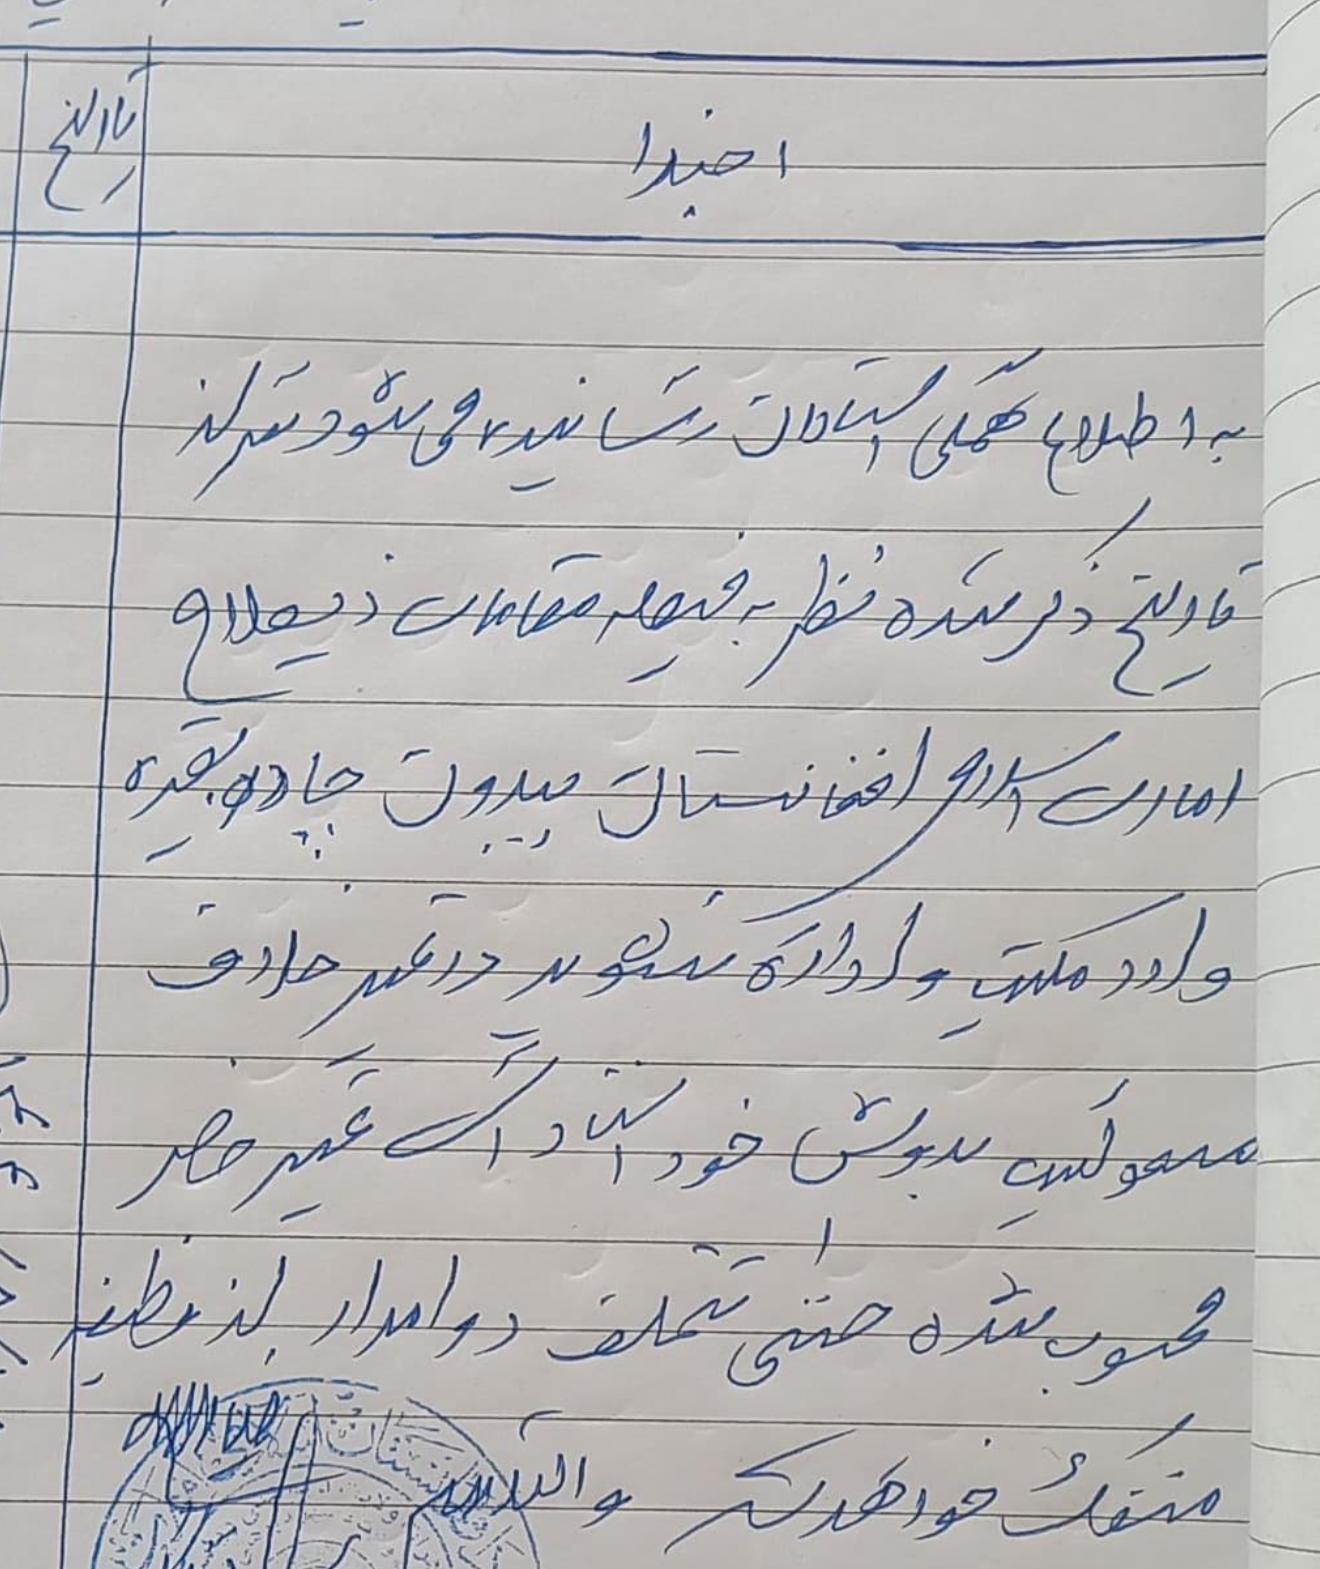 اجندا
تاریخ
به اطلاع همگی استادان رسانیده می شود سر از
تاریخ ذکر شده نظر به فیصله مقامات ذیصلاح
امارت اسلامی افغانستان بدون چادری برقه
وارد مکتب و اداره نشوند در غیر خلاف
مسولیت بدوش خود استاد است غیر حاضر
محسوب شده حتی متخلف دوامدار از وظیفه
منفک خواهد شد والسلام